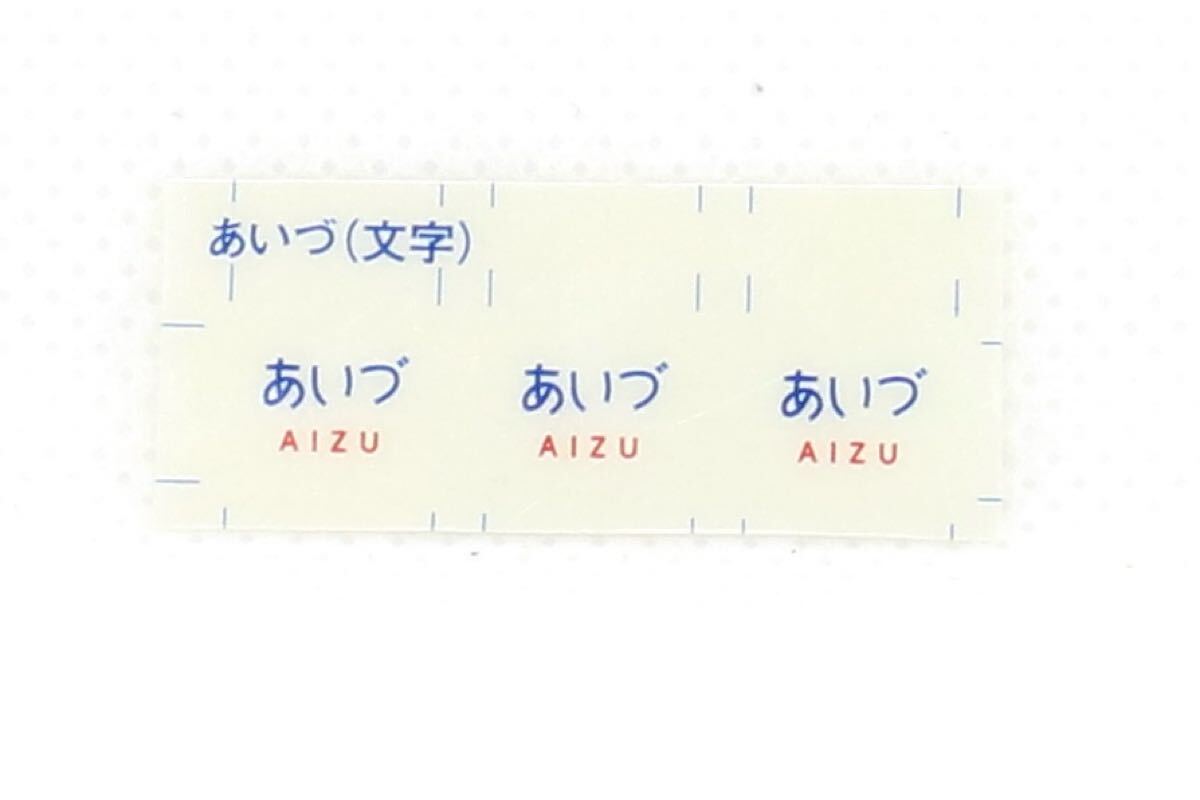 あいづ(文字)
あいづ あいづ あいづ
AIZU AIZU AIZU